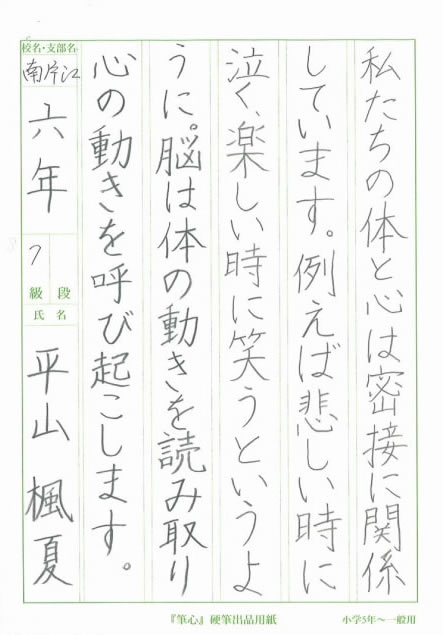 私たちの体と心は密接に関係
しています。例えば悲しい時に
泣く、楽しい時に笑うというよ
うに。脳は体の動きを読み取り
心の動きを呼び起こします。
校名・支部名
南片江
六年
7
級 段
氏名
平山楓夏
『筆心』硬筆出品用紙
小学5年～一般用